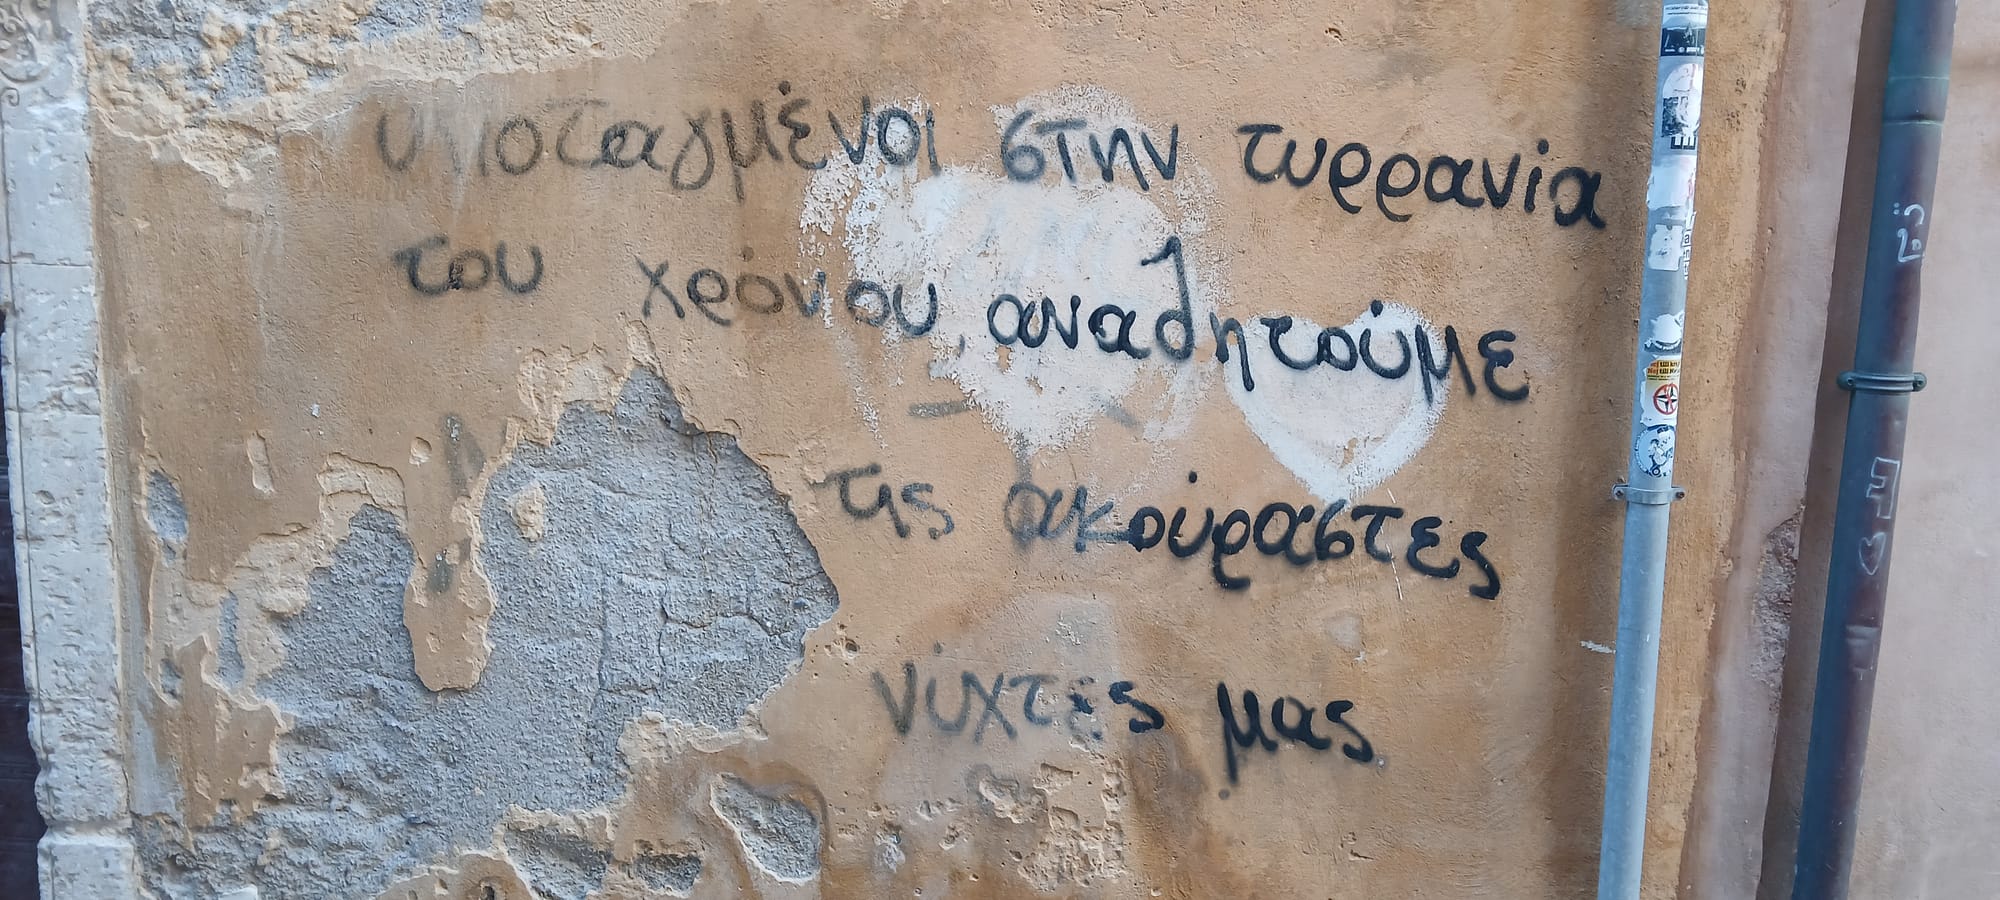 υποταγμένοι στην τυρρανία
του χρόνου, αναζητούμε
τις ακούραστες
νύχτες μας